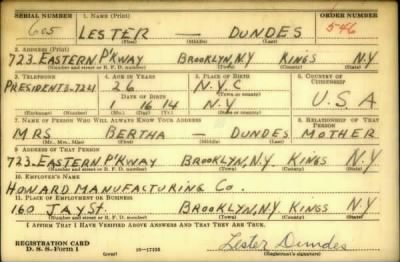 SERIAL NUMBER 1. NAME (Print) ORDER NUMBER
605 LESTER — DUNDES 546
(First) (Middle) (Last)
2. ADDRESS (Print)
723 EASTERN P'KWAY BROOKLYN, N.Y. KINGS N.Y
(Number and street or R. F. D. number) (Town) (County) (State)
3. TELEPHONE 4. AGE IN YEARS 5. PLACE OF BIRTH 6. COUNTRY OF CITIZENSHIP
PRESIDENT 3-7221 26 N.Y.C
DATE OF BIRTH (Town or county)
1 16 14 N.Y U.S.A
(Exchange) (Number) (Mo.) (Day) (Yr.) (State or country)
7. NAME OF PERSON WHO WILL ALWAYS KNOW YOUR ADDRESS 8. RELATIONSHIP OF THAT PERSON
MRS BERTHA — DUNDES MOTHER
(Mr., Mrs., Miss) (First) (Middle) (Last)
9. ADDRESS OF THAT PERSON
723 EASTERN P'KWAY BROOKLYN, N.Y. KINGS N.Y
(Number and street or R. F. D. number) (Town) (County) (State)
10. EMPLOYER'S NAME
HOWARD MANUFACTURING CO.
11. PLACE OF EMPLOYMENT OR BUSINESS
160 JAY ST. BROOKLYN, N.Y KINGS N.Y
(Number and street or R. F. D. number) (Town) (County) (State)
I AFFIRM THAT I HAVE VERIFIED ABOVE ANSWERS AND THAT THEY ARE TRUE.
REGISTRATION CARD
D. S. S. Form 1 (over) Lester Dundes
(Registrant's signature)